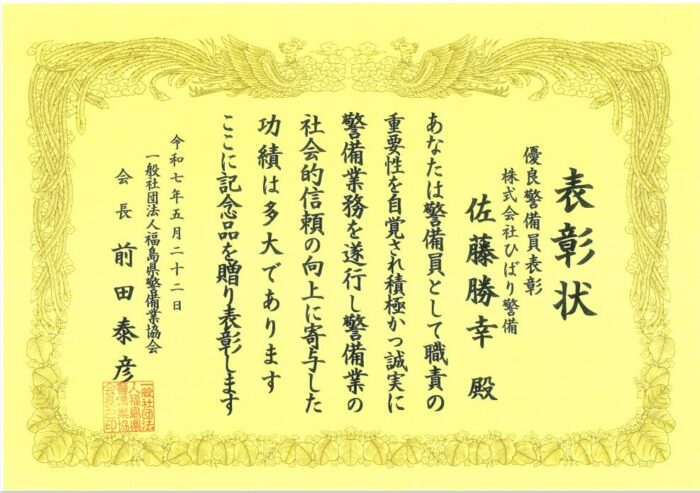 表彰状
優良警備員表彰
株式会社ひばり警備
佐藤勝幸 殿
あなたは警備員として職責の
重要性を自覚され積極かつ誠実に
警備業務を遂行し警備業の
社会的信頼の向上に寄与した
功績は多大であります
ここに記念品を贈り表彰します
令和七年五月二十二日
一般社団法人福島県警備業協会
会長 前田泰彦
一般社団法
人福島県
警備業協
会長之印